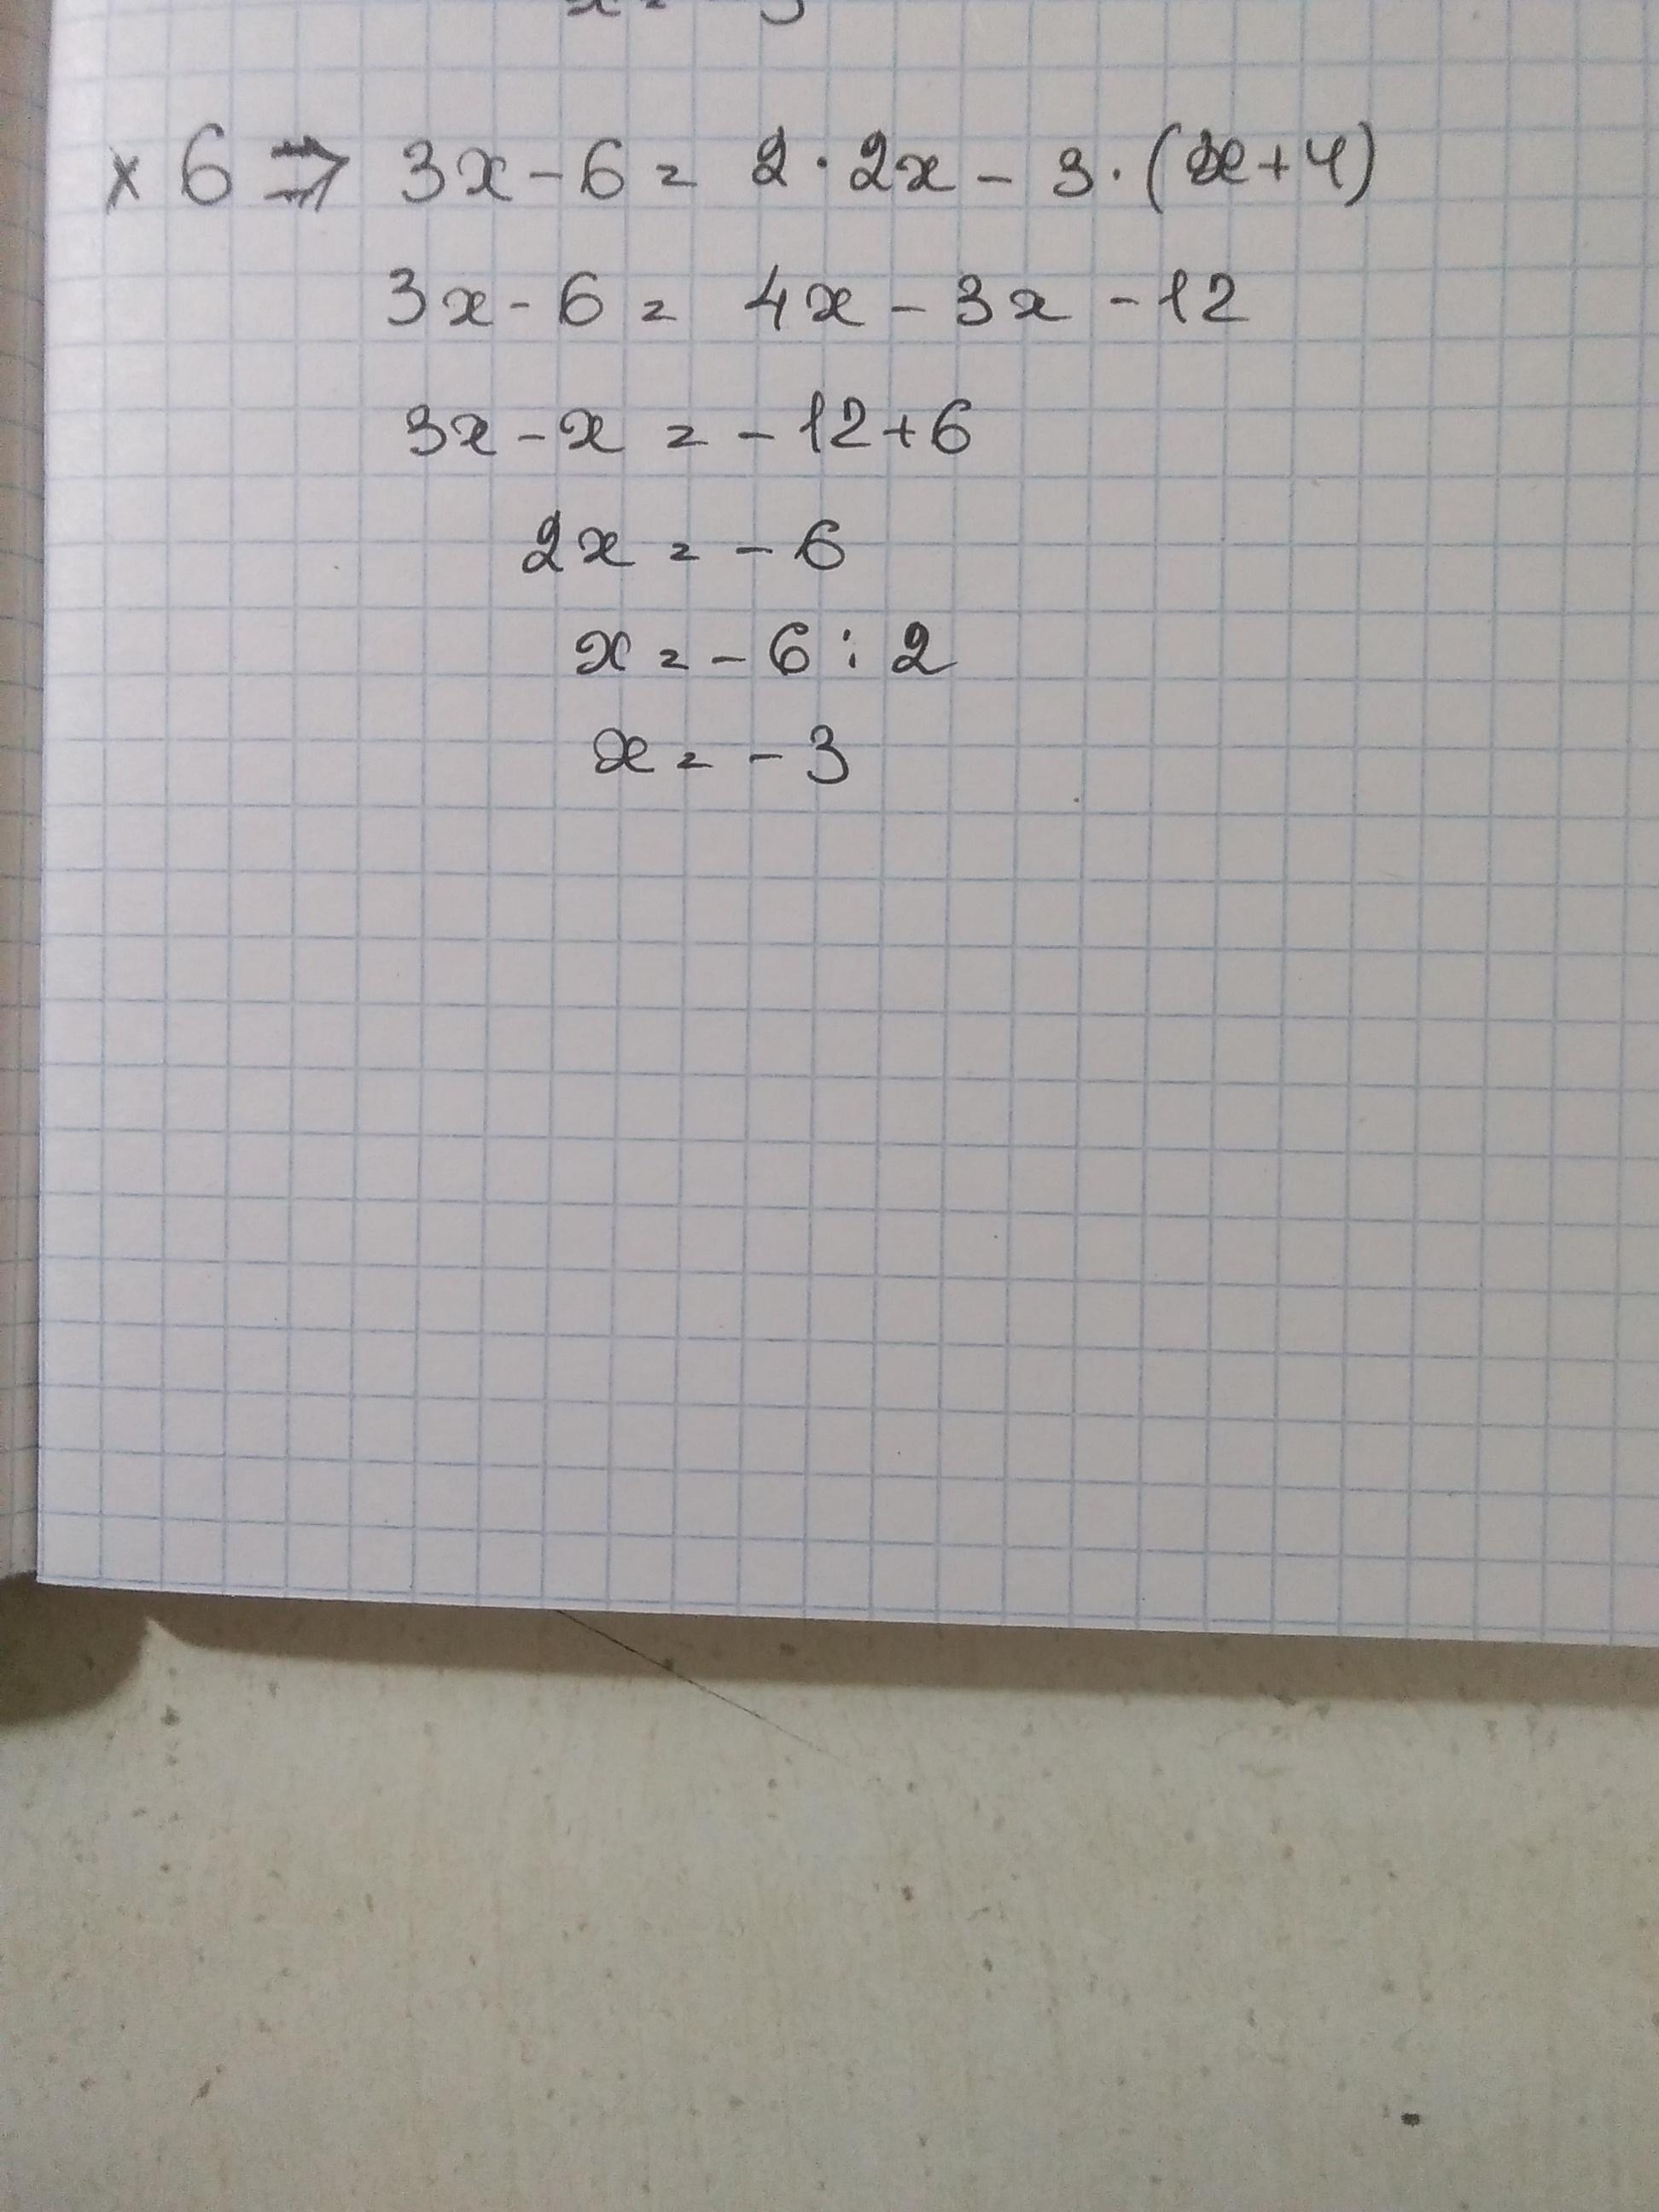 x = - 3
× 6 ⇒ 3x - 6 = 2 · 2x - 3 · (x + 4)
3x - 6 = 4x - 3x - 12
3x - x = - 12 + 6
2x = - 6
x = - 6 : 2
x = - 3